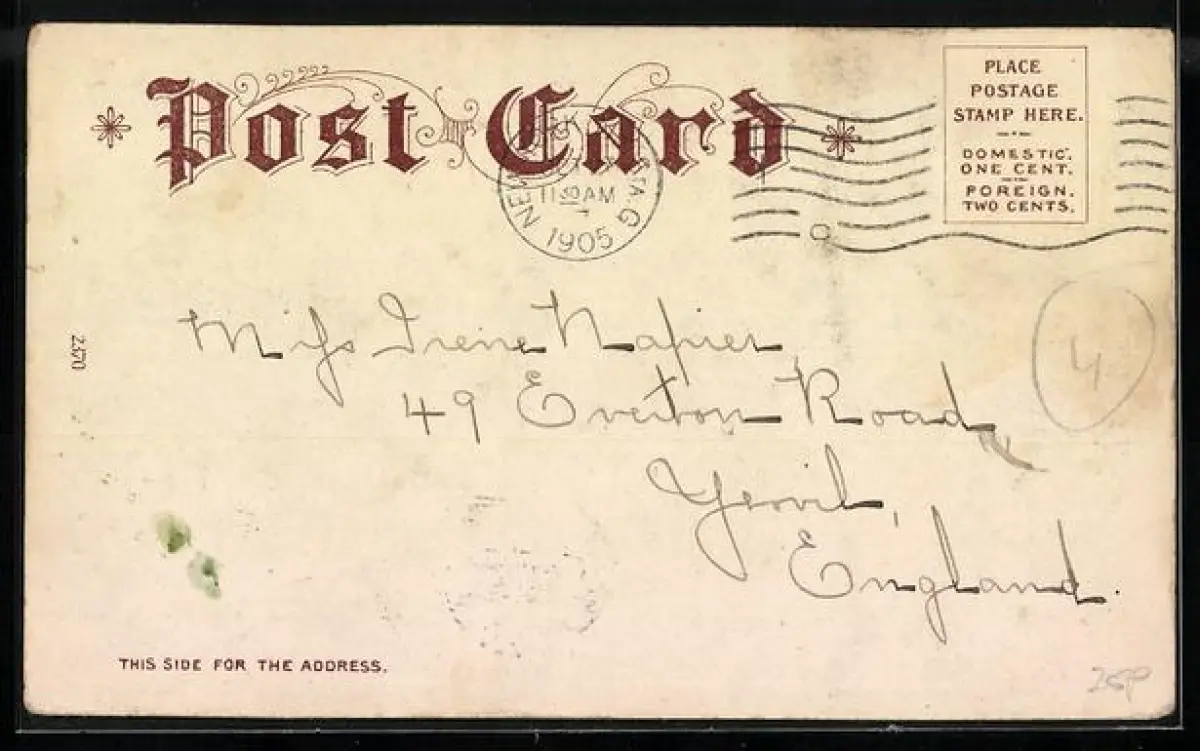 Post Card
PLACE
POSTAGE
STAMP HERE.
DOMESTIC.
ONE CENT.
FOREIGN.
TWO CENTS.
NEW
11 30 AM
1905
Miss Irene Napier
49 Everton Road
Yeovil,
England.
4
2370
THIS SIDE FOR THE ADDRESS.